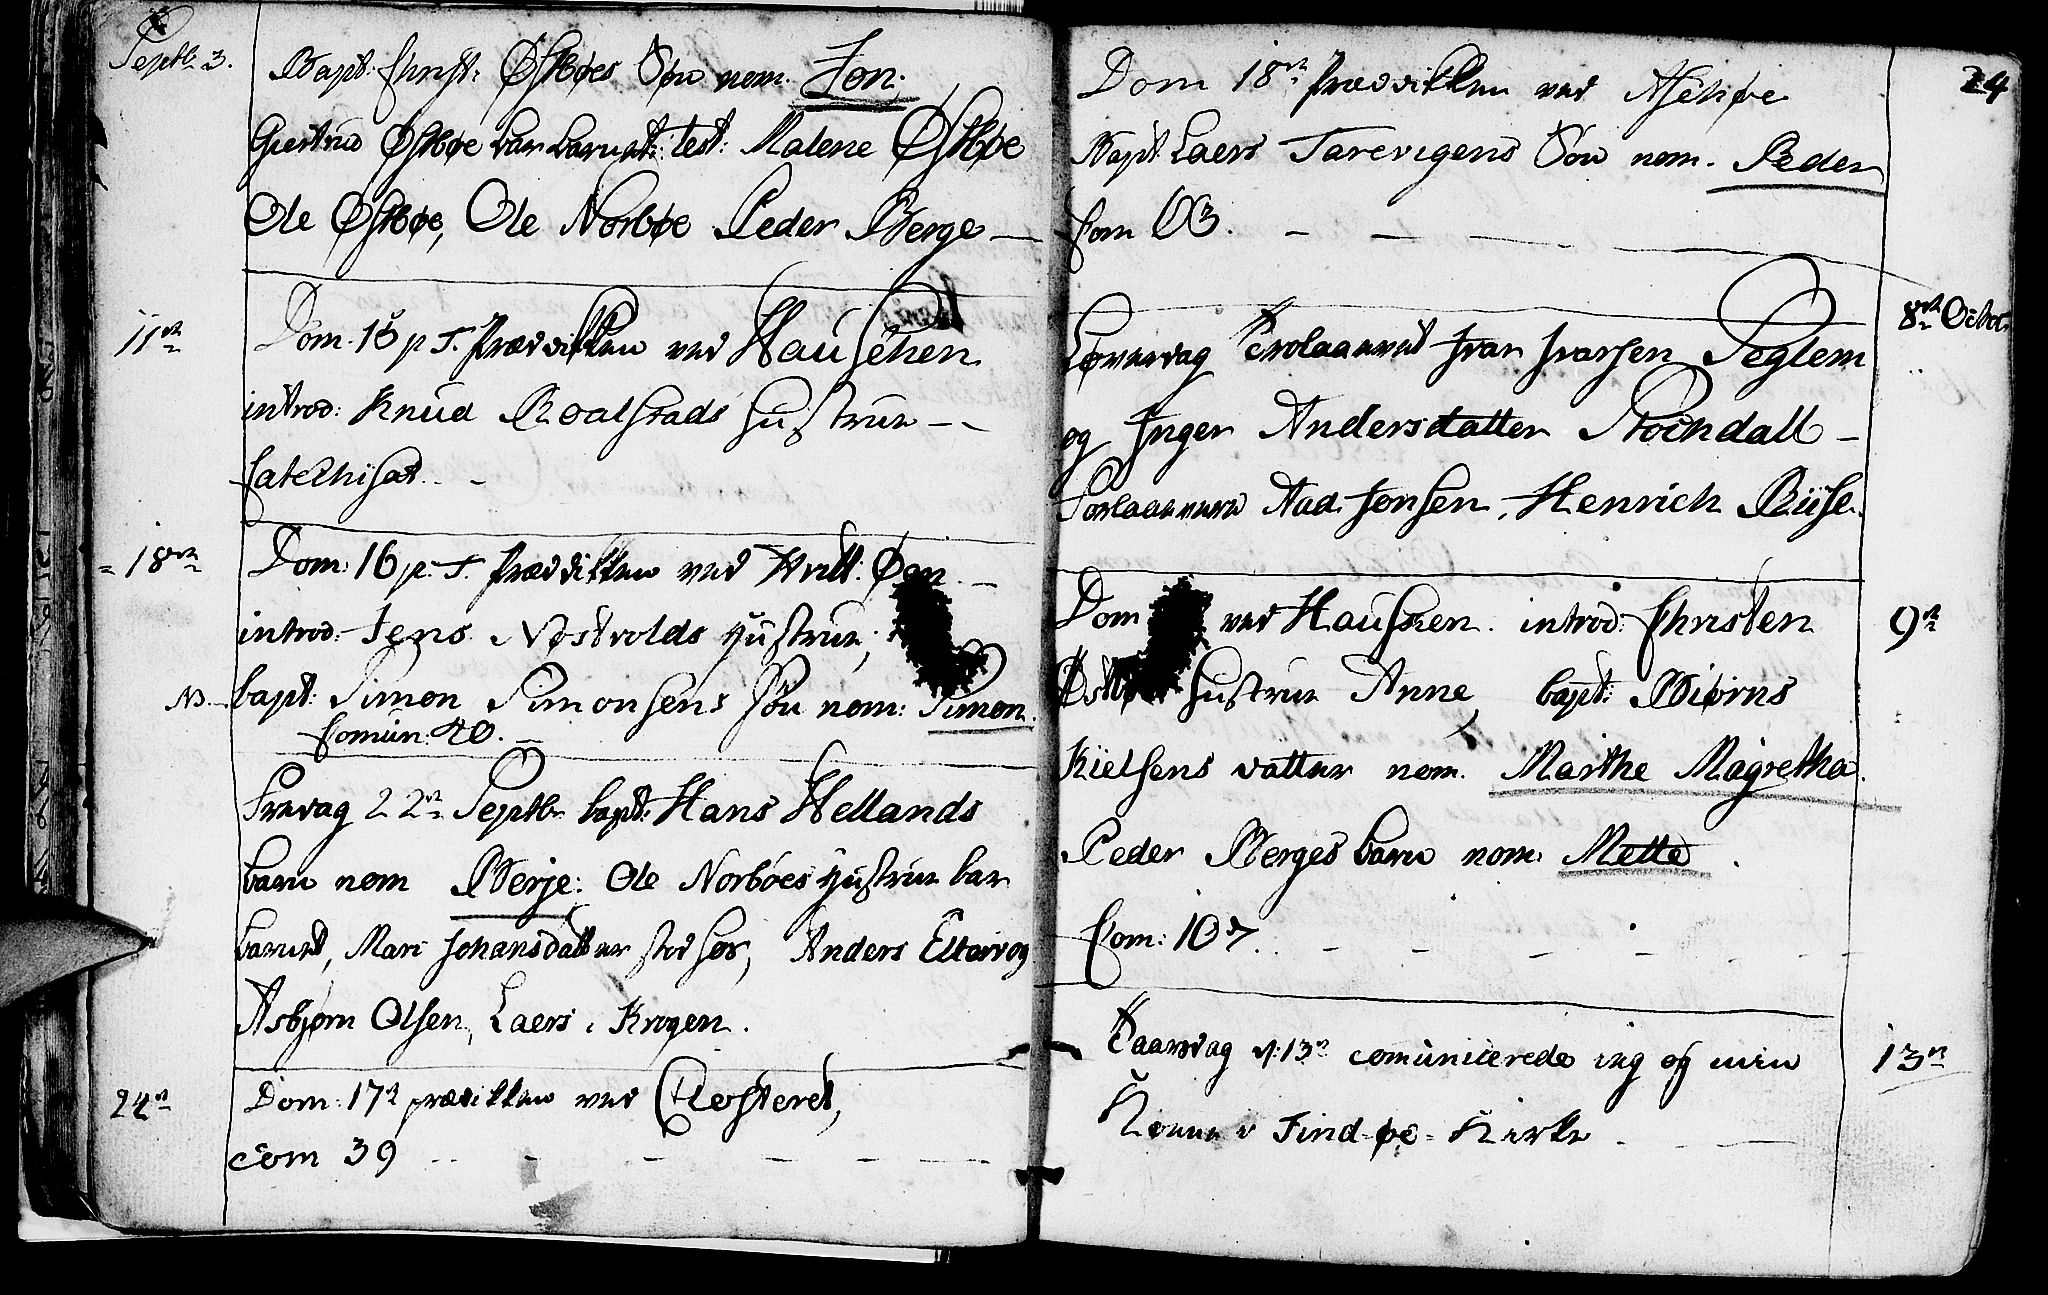 Septb 3.
Bapt: Christ: Østbøes Søn nom. Jon.
Giertrud Østbøe bar barnet: test: Malene Østbøe
Ole Østbøe, Ole Norbøe Peder Berge —
11te
Dom. 15 p T. Prædikken ved Hauschen
introd: Knud Roalstads Hustrue - -
Catechisat. . -
18de
Dom: 16 p. T. Prædikken ved Hvitt: Øen. —
introd: Jens Nøstvolds Hustrue,
NB. bapt: Simon Simonsens Søn nom: Simon.
Comun: 40. —
Fredag 22de Septb bapt: Hans Hellands
barn nom Berje: Ole Norbøes Hustrue bar
barnet, Mari Johansdatter stod hos, Anders Eltarvog
Asbjørn Olsen, Laers i Krogen.
24de
Dom: 17de prædikken ved Closteret,
Com 39 - - - - - -
24
Dom 18de Prædikken ved Aschøe
Bapt: Laers Tarevigens Søn nom. Peder
Com 63. - - - - -
8de Octbr.
Løverdag Trolaavet Ivar Ivarsen Teglem
og Inger Andersdatter Stochdall —
Forlaavere Aad Jonsen, Henrich Riise.
9de
Dom ved Hauschen. introd: Christen
Hustrue Anne, bapt: Biørns
Kielsens datter nom. Marthe Magretha.
Peder Berges barn nom: Mette.
Com: 107. - - - - -
13de
Taarsdag d: 13de comunicerede ieg og min
Konne i Find-øe-Kirke. - —